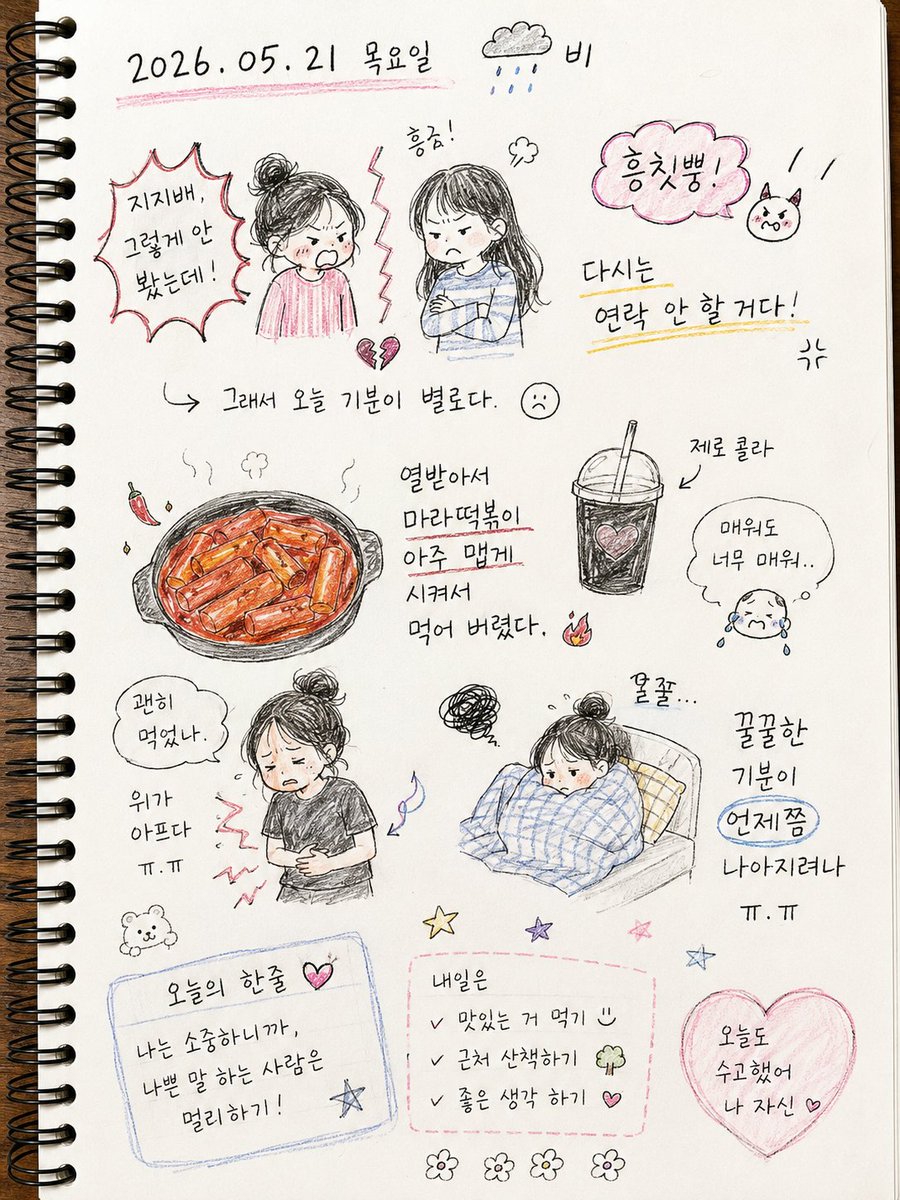 2026.05.21 목요일
비
지지배,
그렇게 안
봤는데!
흥칫뿡!
다시는
연락 안 할 거다!
그래서 오늘 기분이 별로다.
열받아서
마라떡볶이
아주 맵게
시켜서
먹어 버렸다.
제로 콜라
매워도
너무 매워..
괜히
먹었나.
위가
아프다
ㅠ.ㅠ
꿀꿀한
기분이
언제쯤
나아지려나
ㅠ.ㅠ
오늘의 한줄
나는 소중하니까,
나쁜 말 하는 사람은
멀리하기!
내일은
✓ 맛있는 거 먹기
✓ 근처 산책하기
✓ 좋은 생각 하기
오늘도
수고했어
나 자신